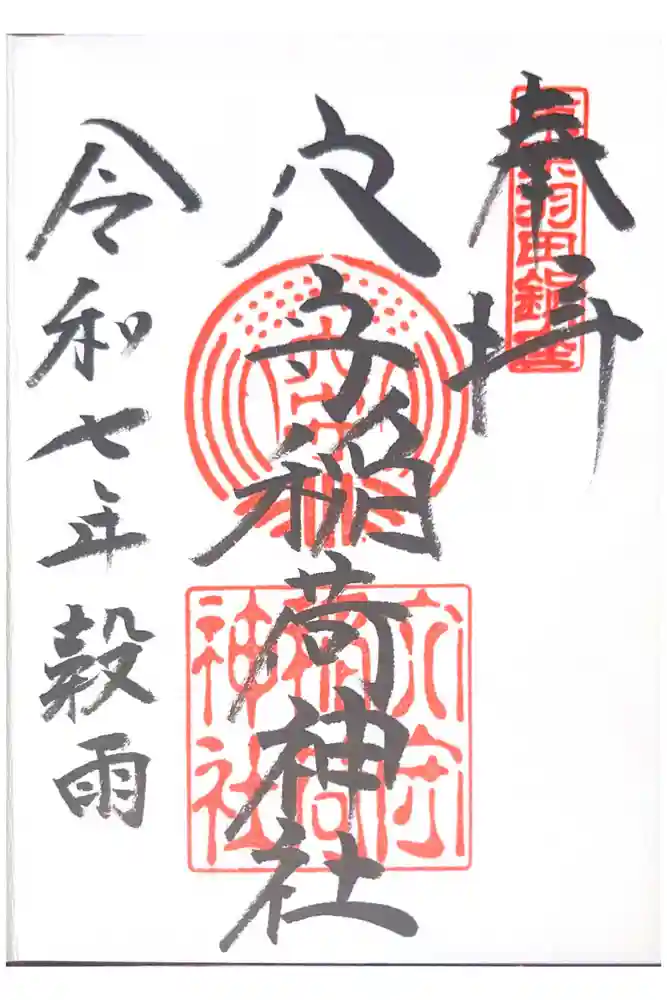 奉拝
東京羽田鎮座
穴守稲荷神社
穴守稲荷神社
令和七年穀雨